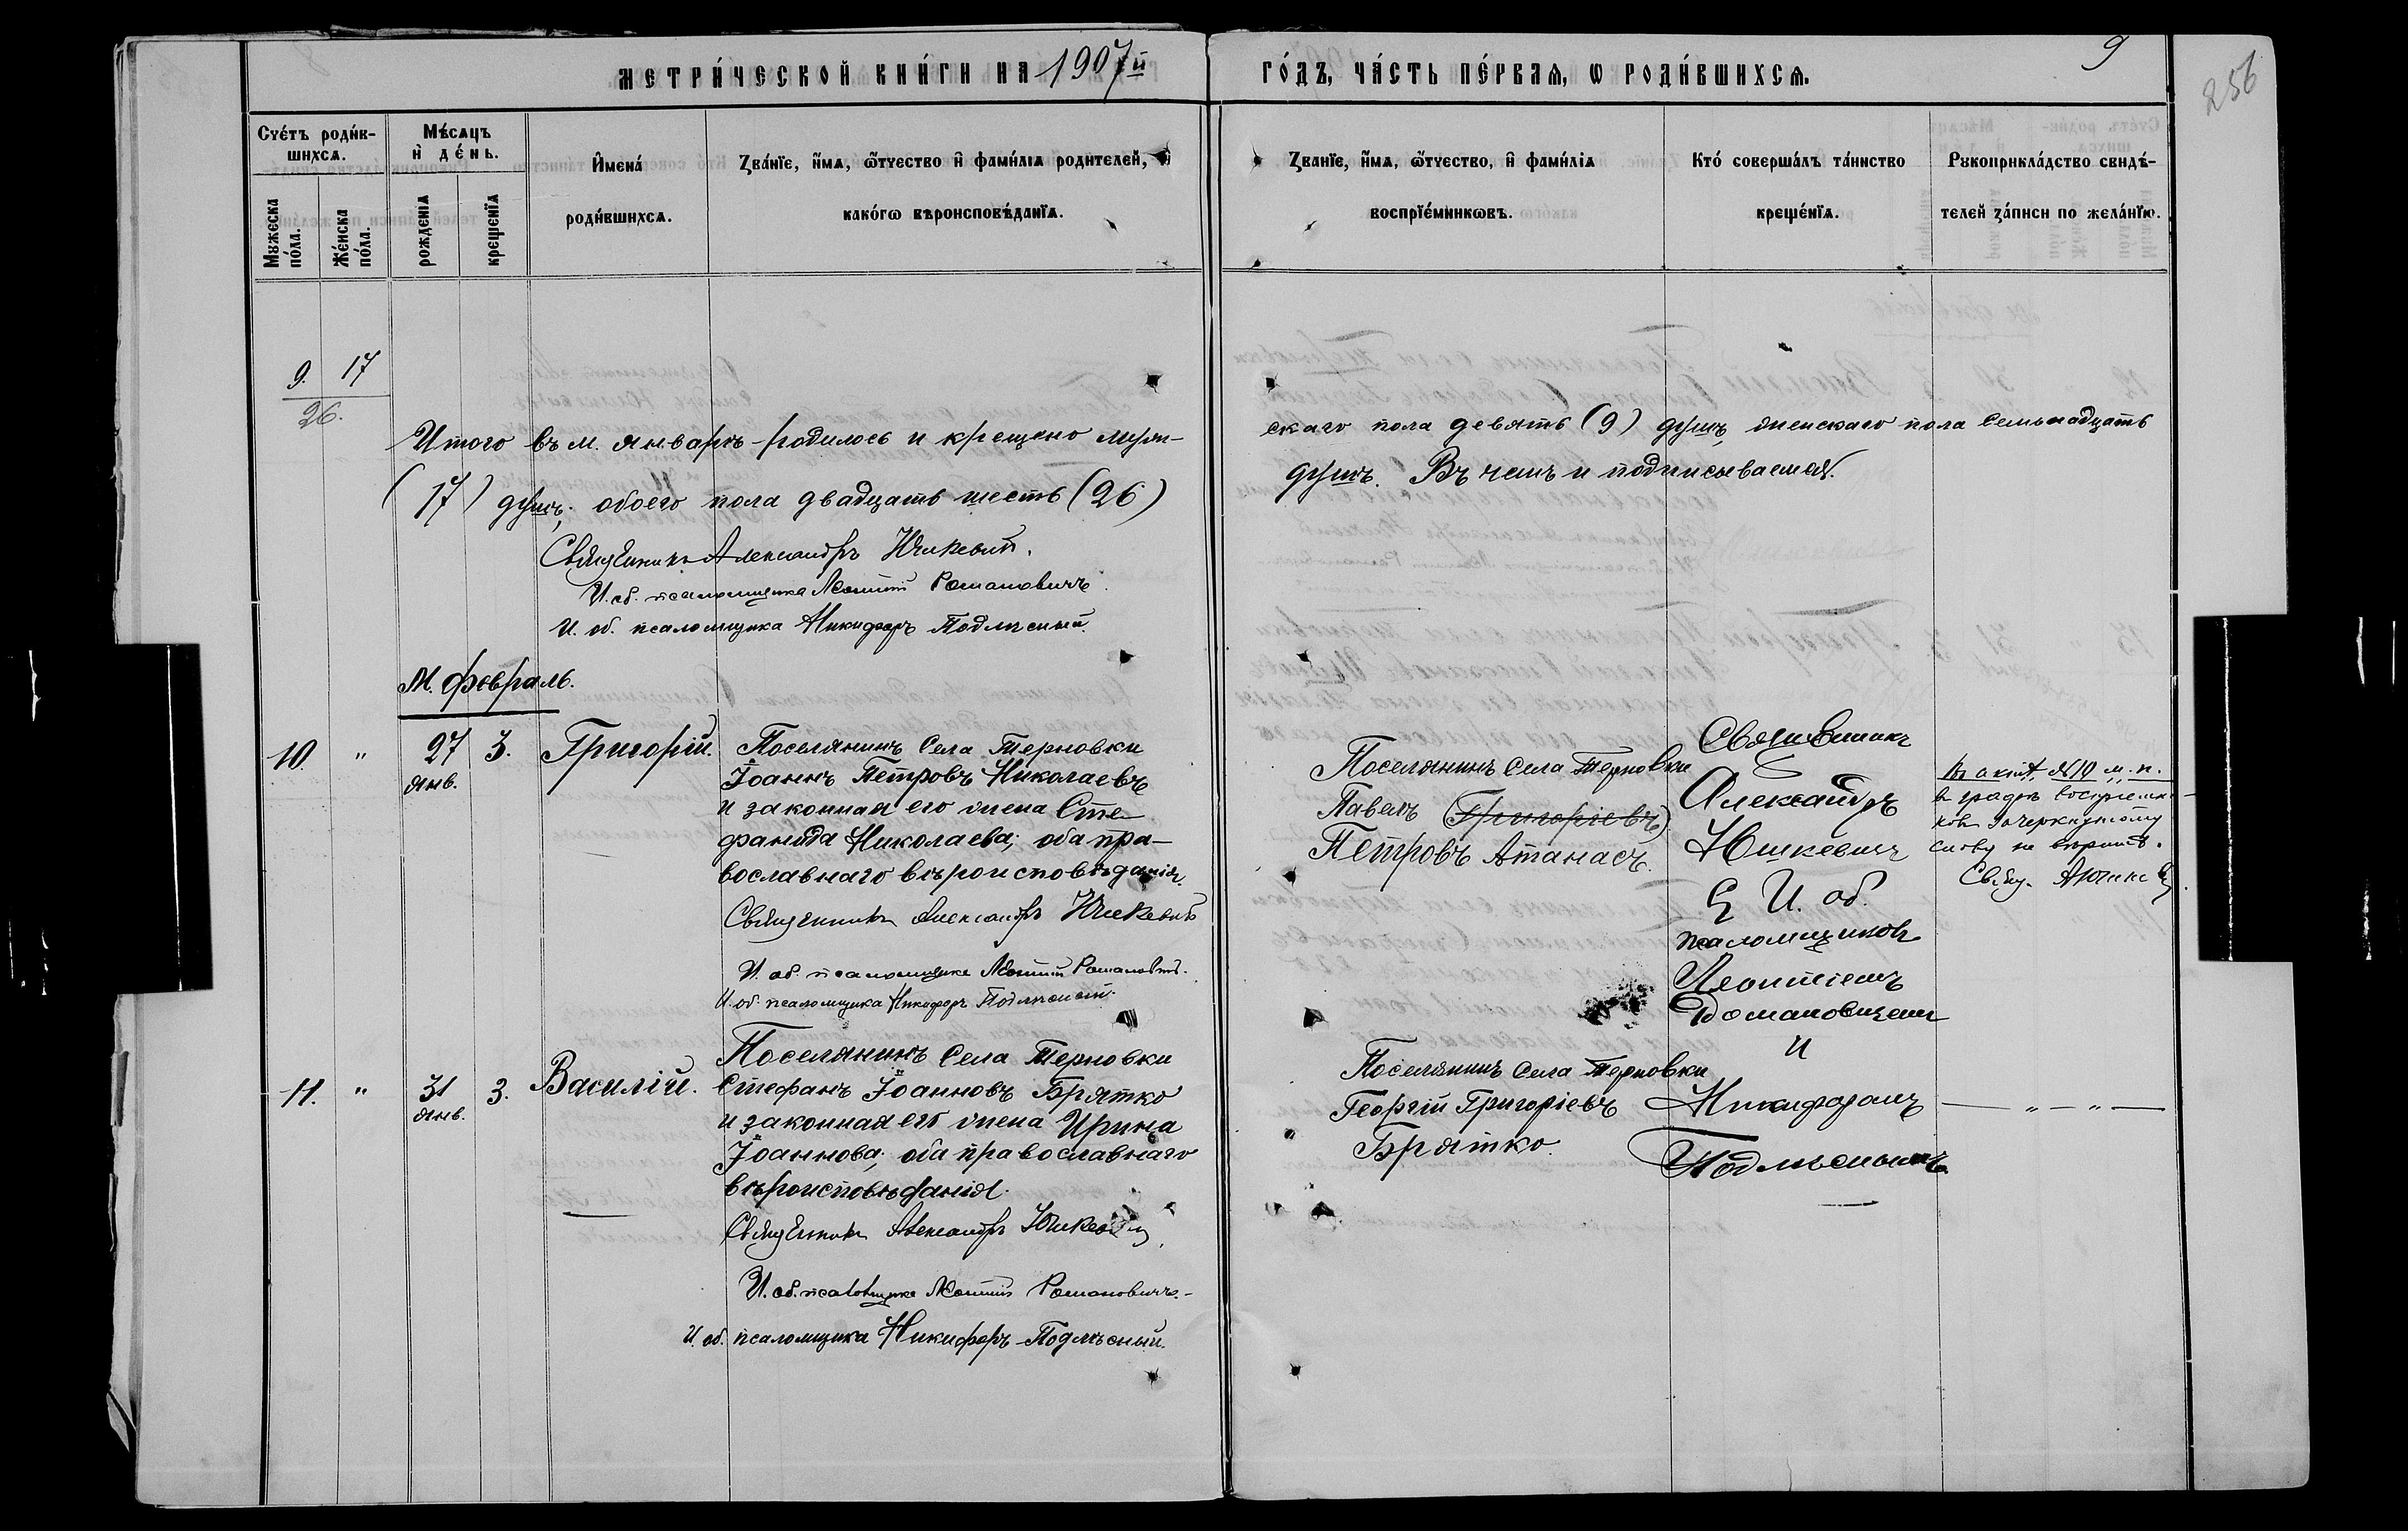 МЕТРИ́ЧЕСКОЙ КНИ́ГИ НА 1907й ГО́ДЪ, ЧА́СТЬ ПЕ́РВАѦ, Ѡ РОДИ́ВШИХСѦ.
9
256
Сче́тъ роди́в-
шихсѧ.
Мꙋжеска
по́ла.
Же́нска
по́ла.
Мѣ́сѧцъ
и҆ де́нь.
рожденїѧ
крещенїѧ
И҆мена́
роди́вшихсѧ.
Зва́нїе, и҆́мѧ, ѻ҆́тчество и҆ фами́лїѧ родителей, и҆
како́гѡ вѣроисповѣ́данїѧ.
Зва́нїе, и҆́мѧ, ѻ҆́тчество, и҆ фами́лїѧ
воспрїе́мникѡвъ.
Кто́ соверша́лъ та́инство
креще́нїѧ.
Рꙋкоприкла́дство свидѣ́-
телей за́писи по жела́нїю.
9. 17
26.
Итого въ м. январѣ родилось и крещено муже-
скаго пола девять (9) душъ женскаго пола семьнадцать
(17) душъ; обоего пола двадцать шесть (26)
душъ. Въ чемъ и подписываемся.
Священникъ Александръ Юшкевичъ.
И. об. псаломщика Леонтій Романовичъ.
И. об. псаломщика Никифоръ Подлѣсный.
М. февраль.
10. " 27 янв. 3. Григорій.
Поселянинъ Села Терновки
Іоаннъ Петровъ Николаевъ
и законная его жена Сте-
фанида Николаева; оба пра-
вославнаго вѣроисповѣданія.
Священникъ Александръ Юшкевичъ
И. об. псаломщика Леонтій Романовичъ.
И. об. псаломщика Никифоръ Подлѣсный.
Поселянинъ Села Терновки
Павелъ (Григоріевъ)
Петровъ Атанасъ.
Священникъ
Александръ
Юшкевичъ
съ И. об.
псаломщиковъ
Леонтіемъ
Романовичемъ
и
Никифоромъ
Подлѣснымъ.
Въ актѣ №10 м. п.
въ графѣ воспріемни-
ковъ зачеркнутому
слову не вѣрить.
Свящ. А Юшкевичъ.
11. " 31 янв. 3. Василій.
Поселянинъ Села Терновки
Стефанъ Іоанновъ Брятко
и законная его жена Ирина
Іоаннова; оба православнаго
вѣроисповѣданія.
Священникъ Александръ Юшкевичъ
И. об. псаломщика Леонтій Романовичъ.
И. об. псаломщика Никифоръ Подлѣсный.
Поселянинъ Села Терновки
Георгій Григоріевъ
Брятко.
— " — " —